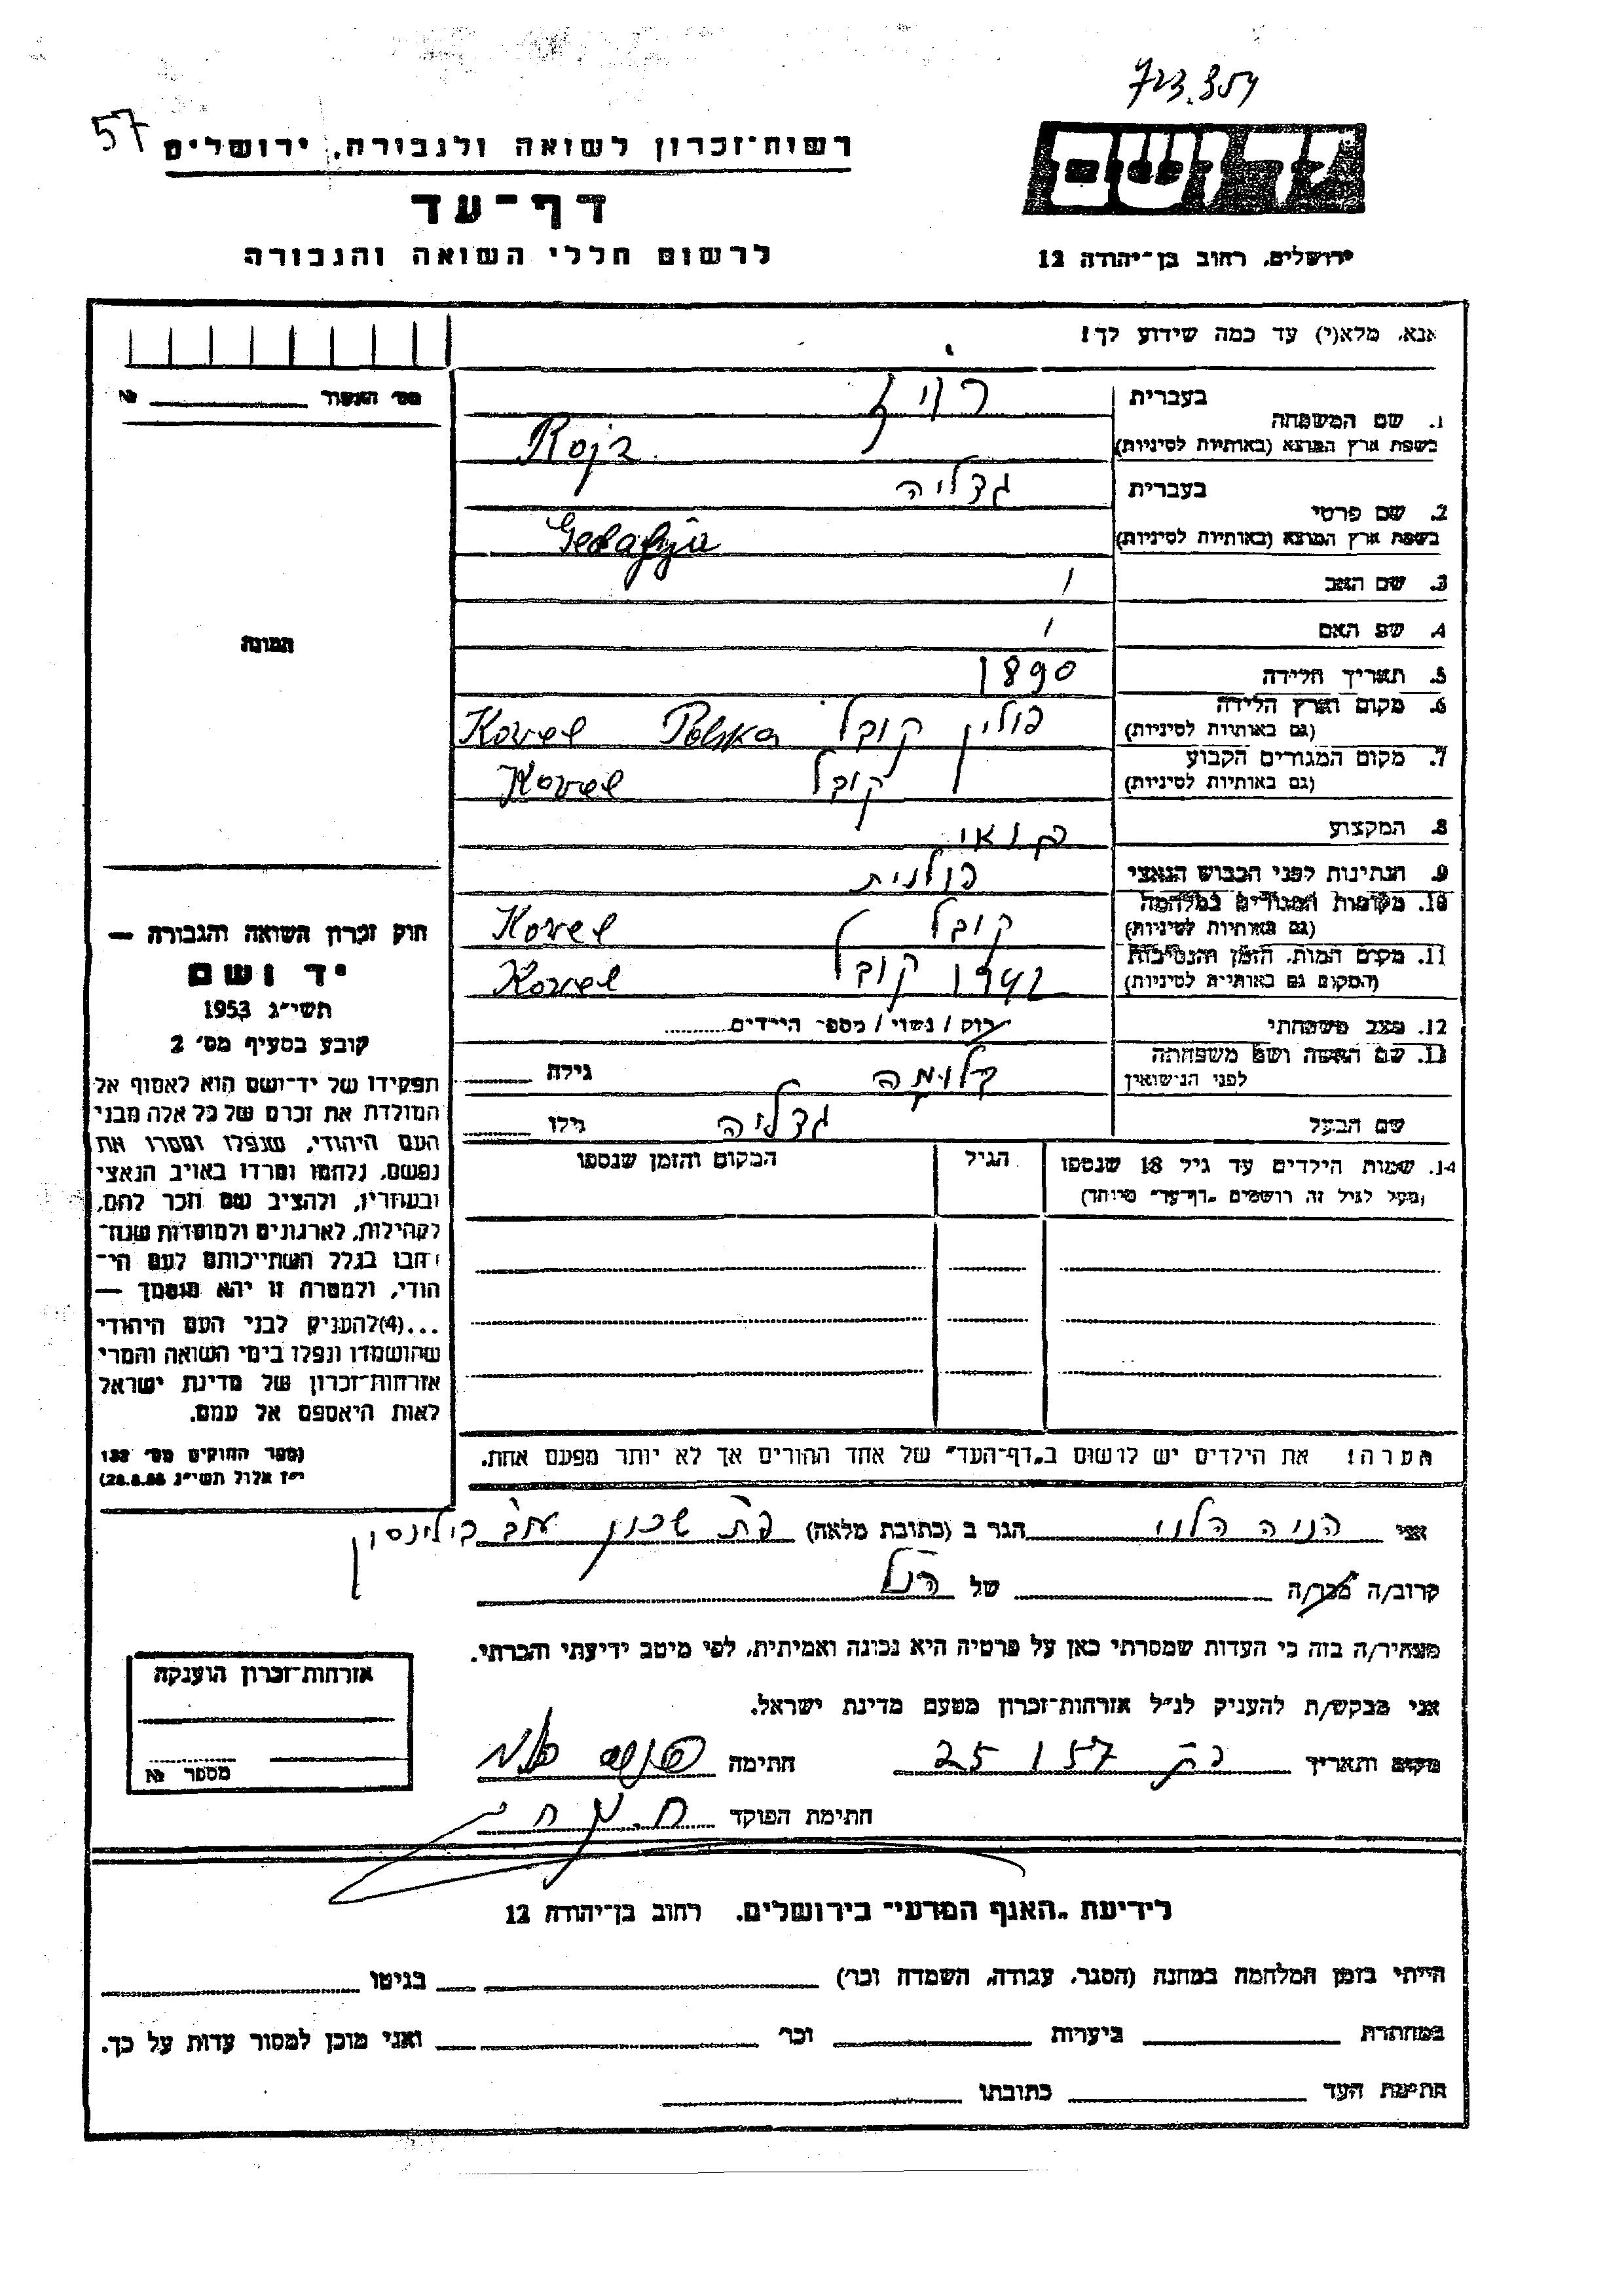 723.354
57
רשות־זכרון לשואה ולגבורה, ירושלים
דף־עד
לרשום חללי השואה והגבורה
יד ושם
ירושלים, רחוב בן־יהודה 12
אנא, מלא(י) עד כמה שידוע לך!
מס׳ האשור №
1. שם המשפחה
בעברית
בשפת ארץ המוצא (באותיות לטיניות)
Rojz
2. שם פרטי
בעברית גדליה
בשפת ארץ המוצא (באותיות לטיניות)
Gedalyja
3. שם האב /
4. שם האם /
5. תאריך הלידה 1890
6. מקום וארץ הלידה
(גם באותיות לטיניות) פולין קובל Polska Kovel
7. מקום המגורים הקבוע
(גם באותיות לטיניות) קובל Kovel
8. המקצוע
9. הנתינות לפני הכבוש הנאצי פולנית
10. מקומות המגורים במלחמה
(גם באותיות לטיניות) קובל Kovel
11. מקום המות, הזמן והנסיבות
(המקום גם באותיות לטיניות) 1942 קובל Kovel
12. מצב משפחתי רוק / נשוי / מספר הילדים
13. שם האשה ושם משפחתה
לפני הנישואין גילה
שם הבעל גדליה גילו
14. שמות הילדים עד גיל 18 שנספו
(מעל לגיל זה רושמים „דף־עד״ מיוחד)
הגיל
המקום והזמן שנספו
הערה! את הילדים יש לרשום ב„דף־העד״ של אחד ההורים אך לא יותר מפעם אחת.
התמונה
חוק זכרון השואה והגבורה —
יד ושם
תשי״ג 1953
קובע בסעיף מס׳ 2
תפקידו של יד־ושם הוא לאסוף אל
המולדת את זכרם של כל אלה מבני
העם היהודי, שנפלו ומסרו את
נפשם, נלחמו ומרדו באויב הנאצי
ובעוזריו, ולהציב שם וזכר להם,
לקהילות, לארגונים ולמוסדות שנח־
רבו בגלל השתייכותם לעם הי־
הודי, ולמטרה זו יהא מוסמך —
...(4)להעניק לבני העם היהודי
שהושמדו ונפלו בימי השואה והמרי
אזרחות־זכרון של מדינת ישראל
לאות היאספם אל עמם.
(ספר החוקים מס׳ 132
י״ז אלול תשי״ג 28.8.53)
אני הניה הגר ב (כתובת מלאה) פת שכון בילינסון
קרוב/ה מכר/ה של הנ״ל
מצהיר/ה בזה כי העדות שמסרתי כאן על פרטיה היא נכונה ואמיתית, לפי מיטב ידיעתי והכרתי.
אני מבקש/ת להעניק לנ״ל אזרחות־זכרון מטעם מדינת ישראל.
מקום ותאריך פת 25 1 57 חתימה
חתימת הפוקד
אזרחות־זכרון הוענקה
מספר №
לידיעת „האגף המדעי״ בירושלים, רחוב בן־יהודה 12
הייתי בזמן המלחמה במחנה (הסגר, עבודה, השמדה וכו׳) בגיטו
במחתרת ביערות וכו׳ ואני מוכן למסור עדות על כך.
חתימת העד כתובתו